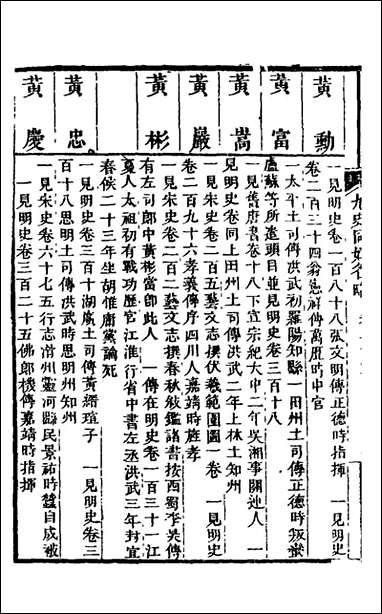 九史同姓名略
黃勳
一見明史卷一百八十八張文明傳正德時指揮　一見明史
卷二百三十四翁憲祥傳萬曆時中官
黃富
一太平土司傳洪武初羅陽知縣一田州土司傳正德時叛嶽
盧蘇等所遣頭目並見明史卷三百十八
黃嵩
一見舊唐書卷十八下宣宗紀大中二年吳湘事關連人　一
見明史卷同上田州土司傳洪武二年上林土知州
黃嚴
一見宋史卷二百五藝文志撰伏羲範圍圖一卷　一見明史
卷二百九十六孝義傳序四川人嘉靖時旌孝
黃彬
一見宋史卷二百二藝文志撰春秋敍鑑諸書按西蜀李吳傳
有左司郎中黃彬當卽此人　一傳在明史卷一百三十一江
夏人太祖初有戰功歷官江淮行省中書左丞洪武三年封宜
春侯二十三年胡惟庸黨論死
黃忠
一見明史卷三百十湖廣土司傳黃縉瑄子　一見明史卷三
百十八思明土司傳洪武時思明州知州
黃慶
一見宋史卷六十七五行志滑州靈河縣民景祐時蠶自成被
一見明史卷三百二十五佛郎機傳嘉靖時指揮